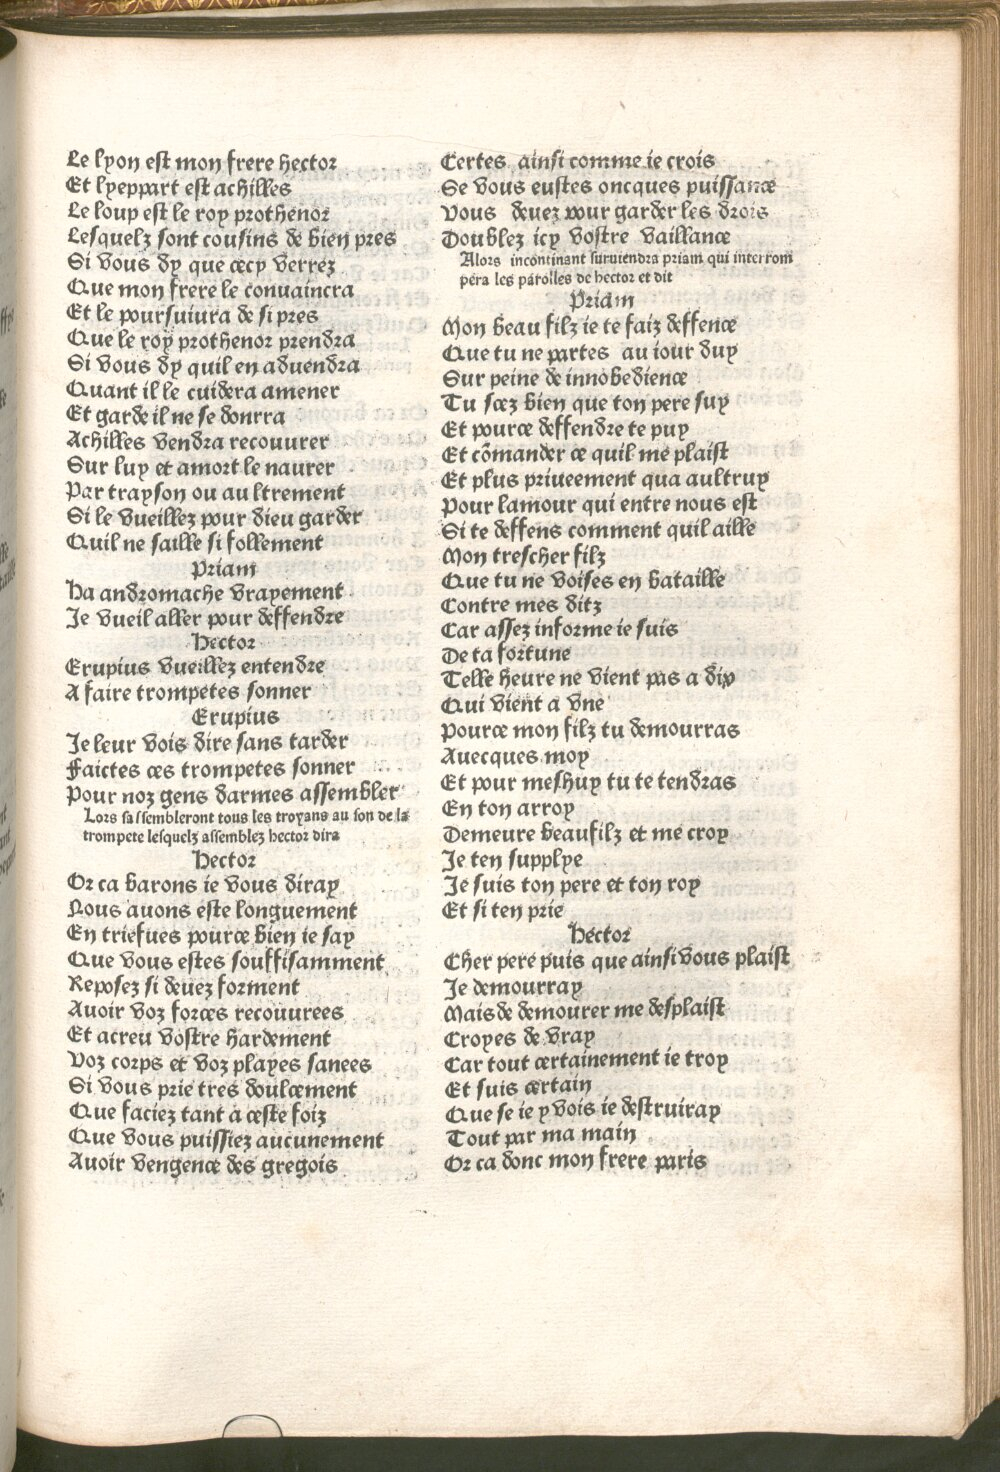 Le lyon est mon frere hector
Et lyeppart est achilles
Le loup est le roy prothenor
Lesquelz sont cousins de bien pres
Si vous dy que cecy verrez
Que mon frere le conuaincra
Et le poursuiura de si pres
Que le roy prothenor prendra
Si vous dy quil en aduendra
Quant il le cuidera amener
Et garde il ne se donrra
Achilles vendra recouurer
Sur luy et amort le naurer
Par trayson ou aultrement
Si le vueillez pour dieu garder
Quil ne saille si follement
Priam
Ha andromache vrayement
Je vueil aller pour deffendre
Hector
Erupius vueillez entendre
A faire trompetes sonner
Erupius
Je leur vois dire sans tarder
Faictes ces trompetes sonner
Pour noz gens darmes assembler
Lors sassembleront tous les troyans au son de la
trompete lesquelz assemblez hector dira
Hector
Or ca barons ie vous diray
Nous auons este longuement
En triefues pource bien ie say
Que vous estes souffisamment
Reposez si deuez forment
Auoir voz forces recouurees
Et acreu vostre hardement
Voz corps et voz playes sanees
Si vous prie tres doulcement
Que faciez tant a ceste foiz
Que vous puissiez aucunement
Auoir vengence des gregois
Certes ainsi comme ie crois
Se vous eustes oncques puissance
Vous deuez pour garder les drois
Doublez icy vostre vaillance
Alors incontinant suruiendra priam qui interrom
pera les parolles de hector et dit
Priam
Mon beau filz ie te faiz deffence
Que tu ne partes au iour duy
Sur peine de innobedience
Tu scez bien que ton pere suy
Et pource deffendre te puy
Et cõmander ce quil me plaist
Et plus priueement qua aultruy
Pour lamour qui entre nous est
Si te deffens comment quil aille
Mon trescher filz
Que tu ne voises en bataille
Contre mes ditz
Car assez informe ie suis
De ta fortune
Telle heure ne vient pas a dix
Qui vient a vne
Pource mon filz tu demourras
Auecques moy
Et pour meshuy tu te tendras
En ton arroy
Demeure beaufilz et me croy
Je ten supplye
Je suis ton pere et ton roy
Et si ten prie
Hector
Cher pere puis que ainsi vous plaist
Je demourray
Mais de demourer me desplaist
Croyes de vray
Car tout certainement ie troy
Et suis certain
Que se ie y vois ie destruiray
Tout par ma main
Or ca donc mon frere paris